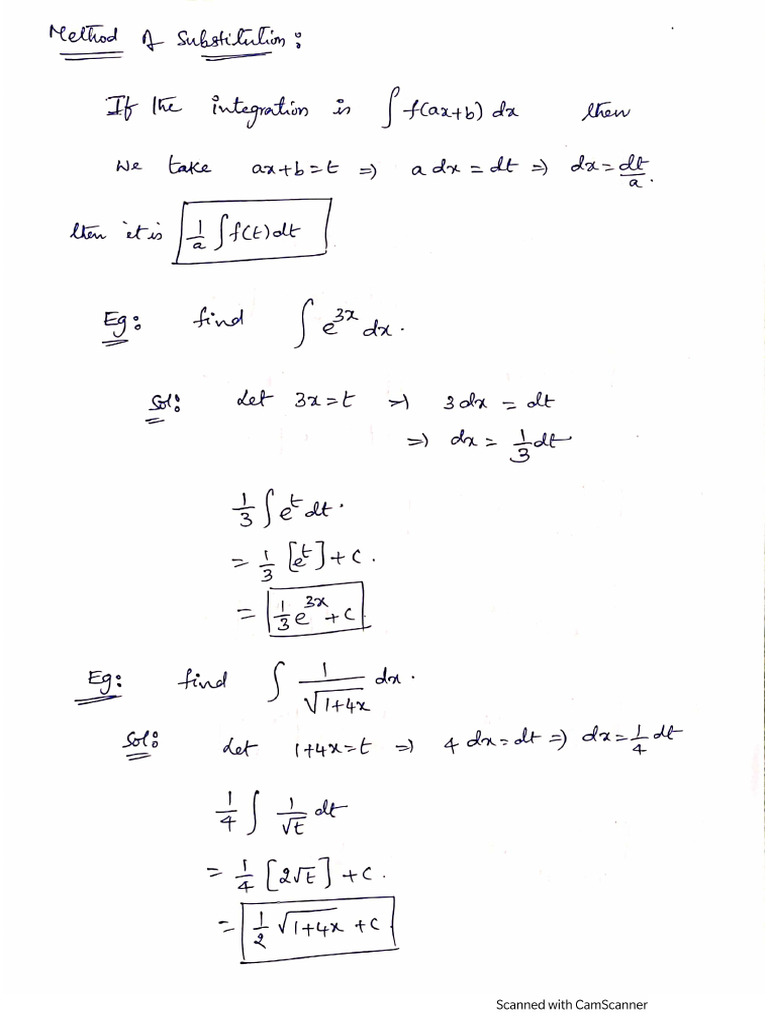 Method of Substitution:
If the integration is ∫ f(ax+b) dx then
we take ax+b=t ⇒ a dx = dt ⇒ dx = dt/a.
then it is 1/a ∫ f(t) dt
Eg: find ∫ e^{3x} dx.
Sol: Let 3x=t ⇒ 3 dx = dt
⇒ dx = 1/3 dt
1/3 ∫ e^t dt.
= 1/3 [e^t] + c.
= 1/3 e^{3x} + c
Eg: find ∫ 1/√(1+4x) dx.
Sol: Let 1+4x=t ⇒ 4 dx = dt ⇒ dx = 1/4 dt
1/4 ∫ 1/√t dt
= 1/4 [2√t] + c.
= 1/2 √(1+4x) + c
Scanned with CamScanner